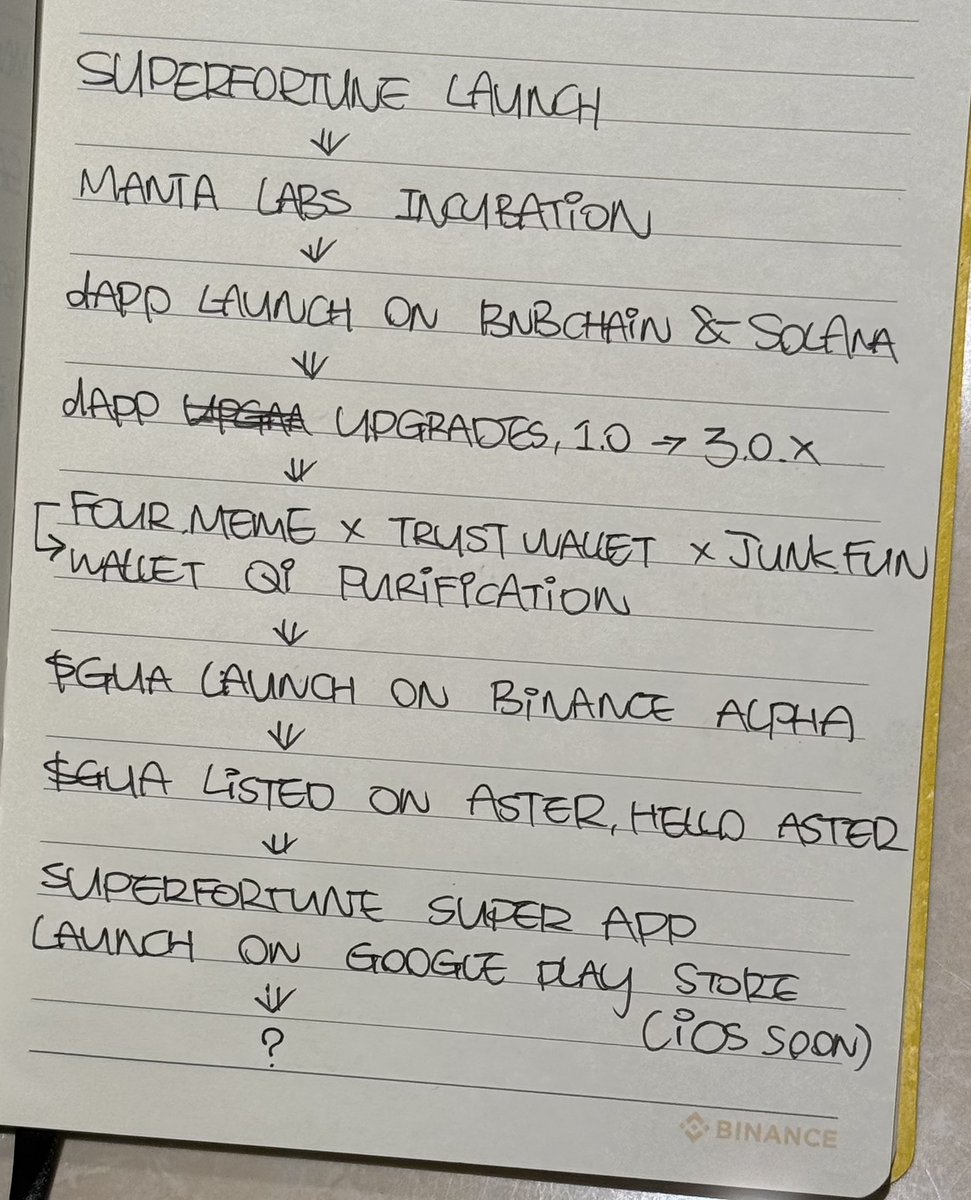 SUPERFORTUNE LAUNCH
⇓
MANTA LABS INCUBATION
⇓
dAPP LAUNCH ON BNBCHAIN & SOLANA
⇓
dAPP UPGRADES, 1.0 → 3.0.X
⇓
FOUR.MEME X TRUST WALLET X JUNK.FUN
↳ WALLET Qi PURIFICATION
⇓
$GUA LAUNCH ON BINANCE ALPHA
⇓
$GUA LISTED ON ASTER, HELLO ASTER
⇓
SUPERFORTUNE SUPER APP
LAUNCH ON GOOGLE PLAY STORE
⇓
(iOS SOON)
?
BINANCE